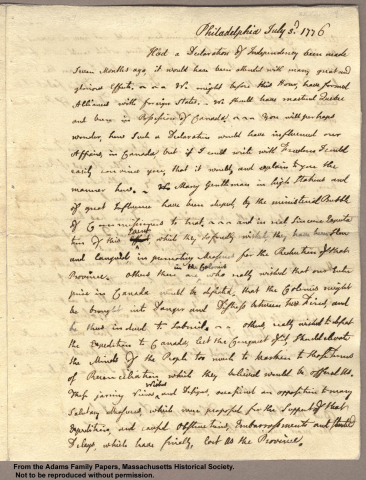 Philadelphia July 3d. 1776
Had a Declaration of Independency been made
seven Months ago, it would have been attended with many great and
glorious Effects. We might before this Hour, have formed
Alliances with foreign States. We should have mastered Quebec
and been in Possession of Canada. You will perhaps
wonder, how such a Declaration would have influenced our
Affairs, in Canada, but if I could write with Freedom I could
easily convince you, that it would, and explain to you the
manner how. Many Gentlemen in high Stations and
of great Influence have been duped, by the ministerial Bubble
of Commissioners to treat, and in real, sincere Expecta
tion of this which they fondly wished, they have been slow
and languid, in promoting Measures for the Reduction of that
Province. Others there are in the Colonies who really wished that our Enter
prise in Canada would be defeated, that the Colonies might
be brought into Danger and Distress between two Fires, and
be thus induced to submit. Others really wished to defeat
the Expedition to Canada, lest the Conquest of it, should elevate
the Minds of the People too much to hearken to those Terms
of Reconciliation which they believed would be offered Us.
These jarring Views, Wishes and Designs, occasioned an opposition to many
salutary Measures, which were proposed for the Support of that
Expedition, and caused Obstructions, Embarrassments and studied
Delays, which have finally, lost Us the Province.
From the Adams Family Papers, Massachusetts Historical Society.
Not to be reproduced without permission.